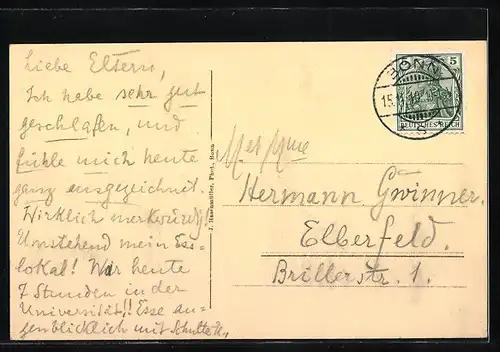 Liebe Eltern,
Ich habe sehr gut
geschlafen, und
fühle mich heute
ganz ausgezeichnet.
Wirklich merkwürdig!
Umstehend mein Ess-
lokal! War heute
7 Stunden in der
Universität!! Esse au-
genblicklich mit
J. Phot. Bonn
BONN
15.11.
5
DEUTSCHES REICH
Hermann Gwinner.
Elberfeld.
Brillerstr. 1.